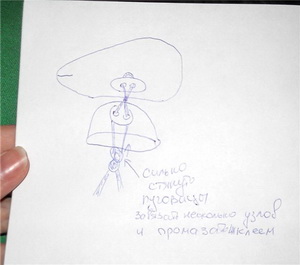 сильно
стянуть
пуговицы
завязать несколько узлов
и промазать клеем